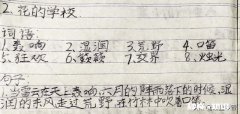 2.花的学校
词语
1.轰响 2.湿润 3.荒野 4.口笛
5.狂欢 6.簌簌 7.放界 8.烛光
句子
当雷云在天上轰响,六月的阵雨落下的时候,湿
润的东风走过荒野,在竹林中吹着口笛